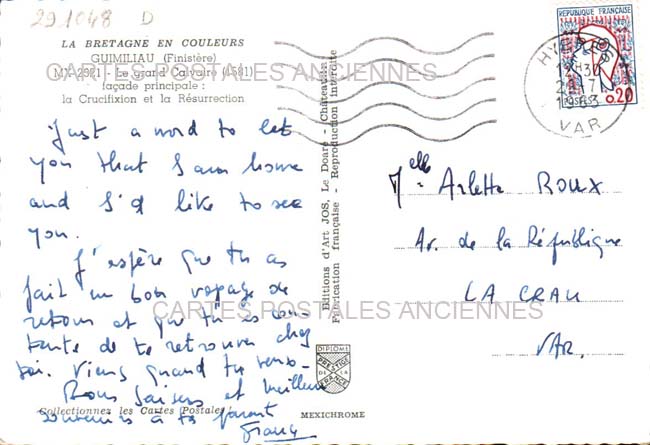 291048 D
LA BRETAGNE EN COULEURS
GUIMILIAU (Finistère)
MX 2521 - Le Grand Calvaire (1581)
façade principale :
la Crucifixion et la Résurrection
CARTES POSTALES ANCIENNES
Just a word to let
you that I am home
and I'd like to see
you.
J'espère que tu as
fait un bon voyage de
retour et que tu es con-
tente de te retrouver chez
toi. Viens quand tu veux.
Bons baisers et meilleurs
souvenirs à tes parents
Collectionnez les Cartes Postales !
Editions d'Art JOS, Le Doaré - Châteaulin
Fabrication française - Reproduction interdite
DIPLOME
PRESTIGE
DE LA
FRANCE
MEXICHROME
REPUBLIQUE FRANÇAISE
POSTES
0,20
HYERES
VAR
Melle Arlette ROUX
Av. de la République
LA CRAU
VAR.
CARTES POSTALES ANCIENNES